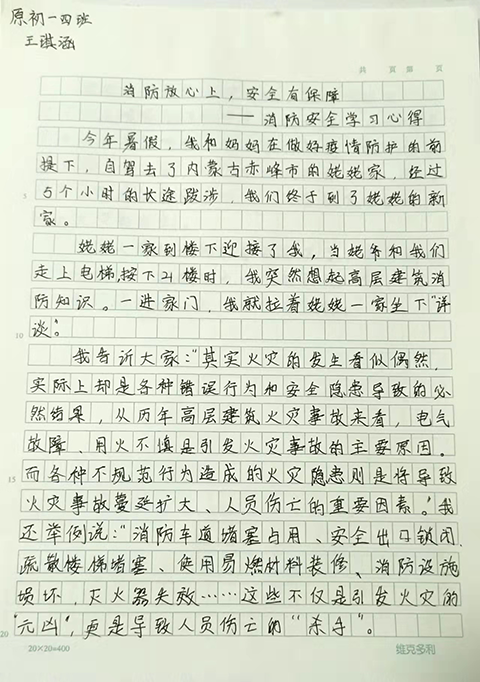 原初一四班
王淇涵
共 页 第 页
消防放心上，安全有保障
——消防安全学习心得
今年暑假，我和妈妈在做好疫情防护的前
提下，自驾去了内蒙古赤峰市的姥姥家，经过
5个小时的长途跋涉，我们终于到了姥姥的新
5
家。
姥姥一家到楼下迎接了我，当姥爷和我们
走上电梯，按下21楼时，我突然想起高层建筑消
防知识。一进家门，我就拉着姥姥一家坐下“详
谈”。
10
我告诉大家：“其实火灾的发生看似偶然，
实际上却是各种错误行为和安全隐患导致的必
然结果，从历年高层建筑火灾事故来看，电气
故障、用火不慎是引发火灾事故的主要原因。
而各种不规范行为造成的火灾隐患则是将导致
15
火灾事故蔓延扩大、人员伤亡的重要因素。”我
还举例说：“消防车道堵塞占用、安全出口锁闭、
疏散楼梯堵塞、使用易燃材料装修、消防设施
损坏，灭火器失效……这些不仅是引发火灾的
“元凶”，更是导致人员伤亡的“杀手”。
20
20×20=400
维克多利